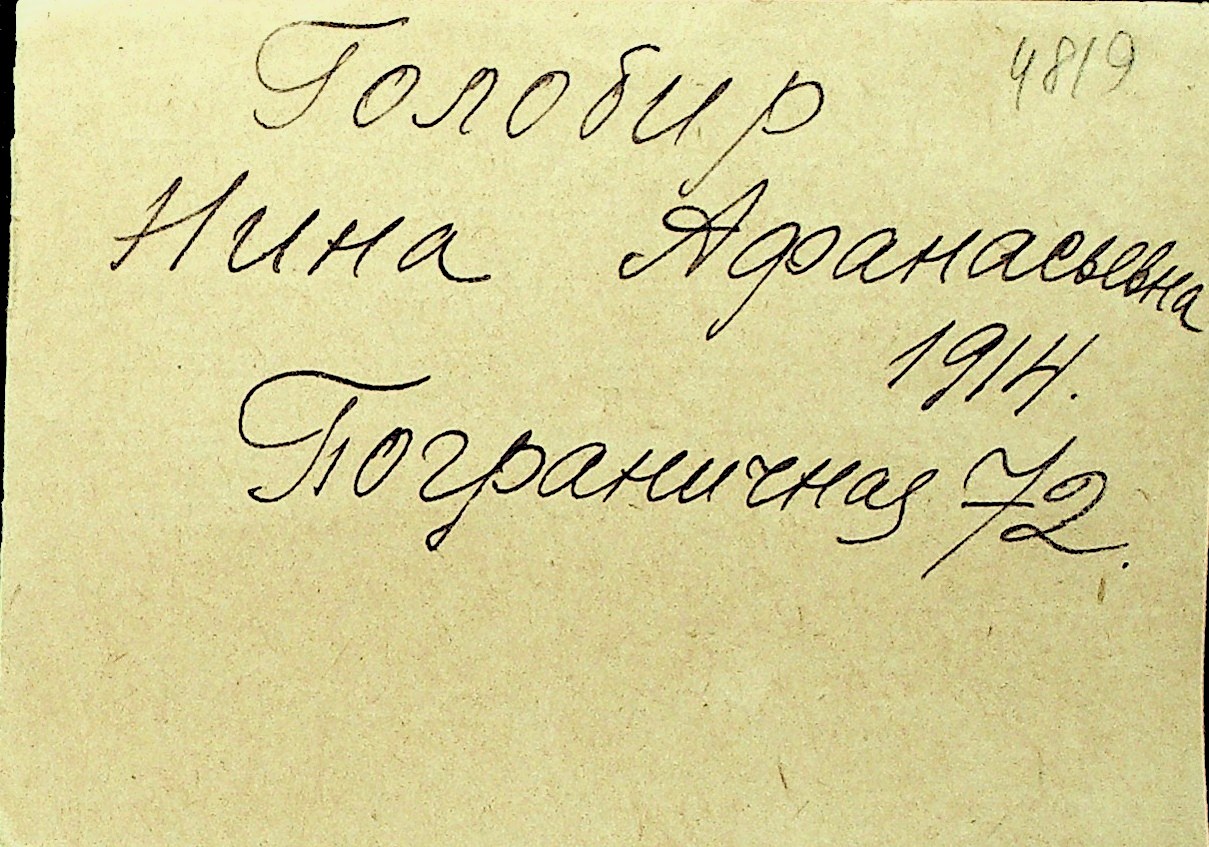 4819
Голобир
Нина Афанасьевна
1914.
Пограничная 72.